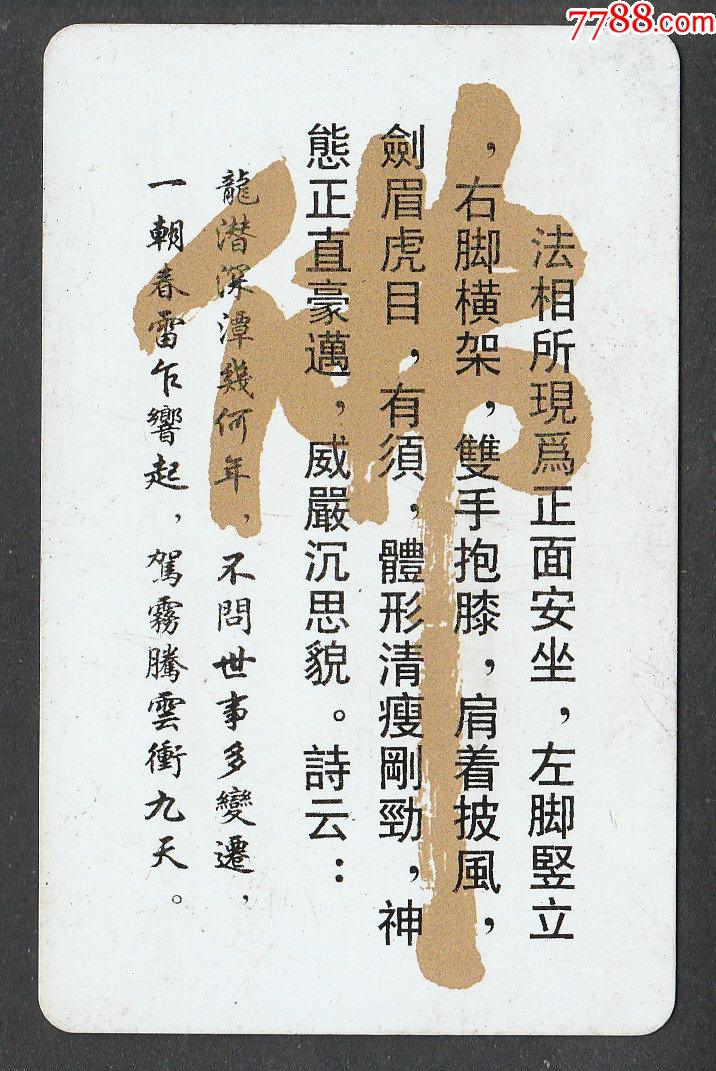 7788.com
佛
法相所現爲正面安坐，左脚竪立
，右脚橫架，雙手抱膝，肩着披風，
劍眉虎目，有須，體形清瘦剛勁，神
態正直豪邁，威嚴沉思貌。詩云：
龍潛深潭幾何年，不問世事多變遷，
一朝春雷乍響起，駕霧騰雲衝九天。